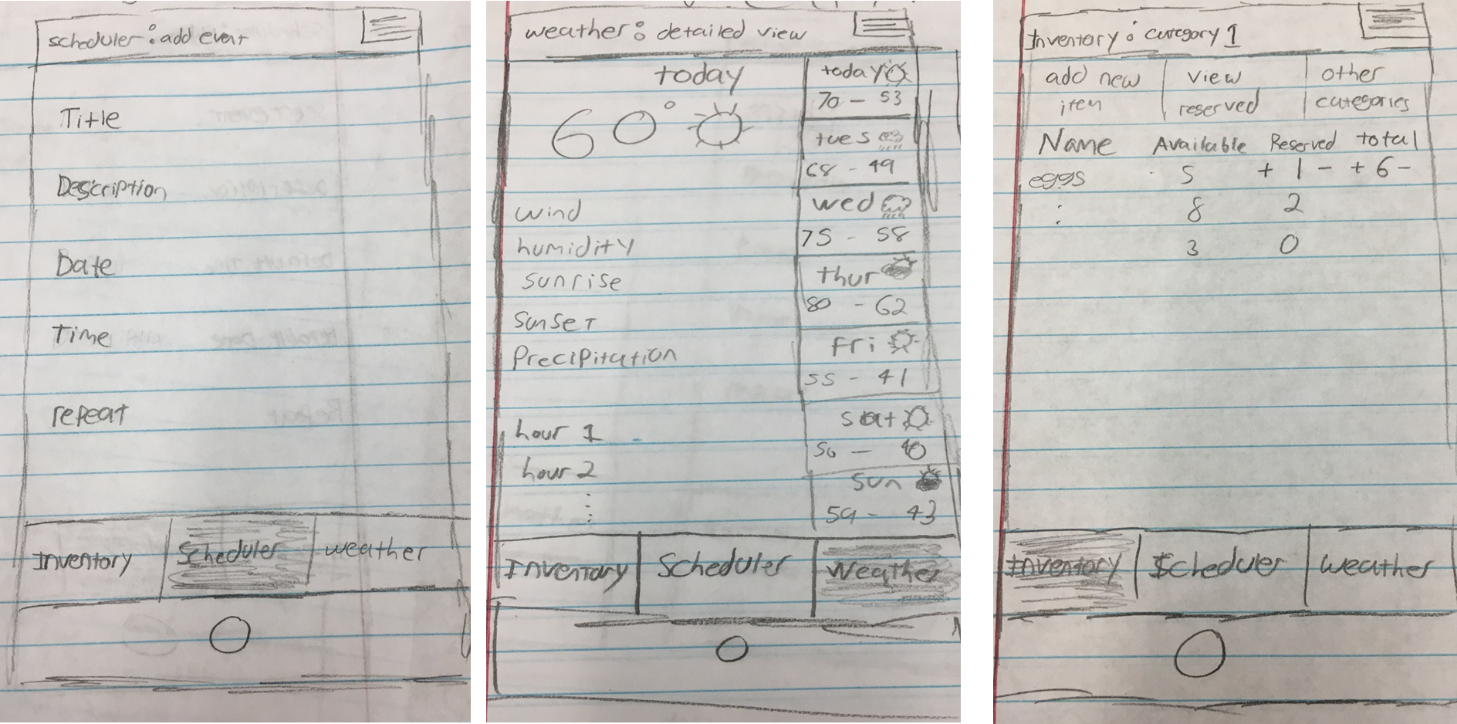 scheduler : add event
Title
Description
Date
Time
repeat
Inventory
Scheduler
weather
weather : detailed view
today
60°
wind
humidity
sunrise
sunset
Precipitation
hour 1
hour 2
:
today
70 - 53
tues
68 - 49
wed
75 - 58
thur
80 - 62
fri
55 - 41
sat
56 - 40
sun
59 - 43
Inventory
Scheduler
Weather
Inventory : category 1
add new item
view reserved
other categories
Name Available Reserved total
eggs 5 + 1 - + 6 -
: 8 2
3 0
Inventory
Scheduler
weather